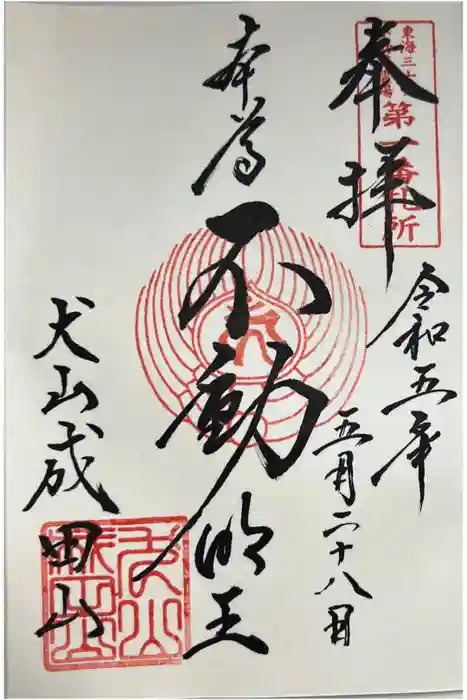 奉拝
東海三十
第一番札所
令和五年
五月二十八日
本尊
不動
明王
犬山成田山